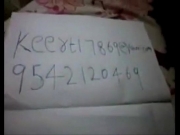 Keert17869@
954-2120469